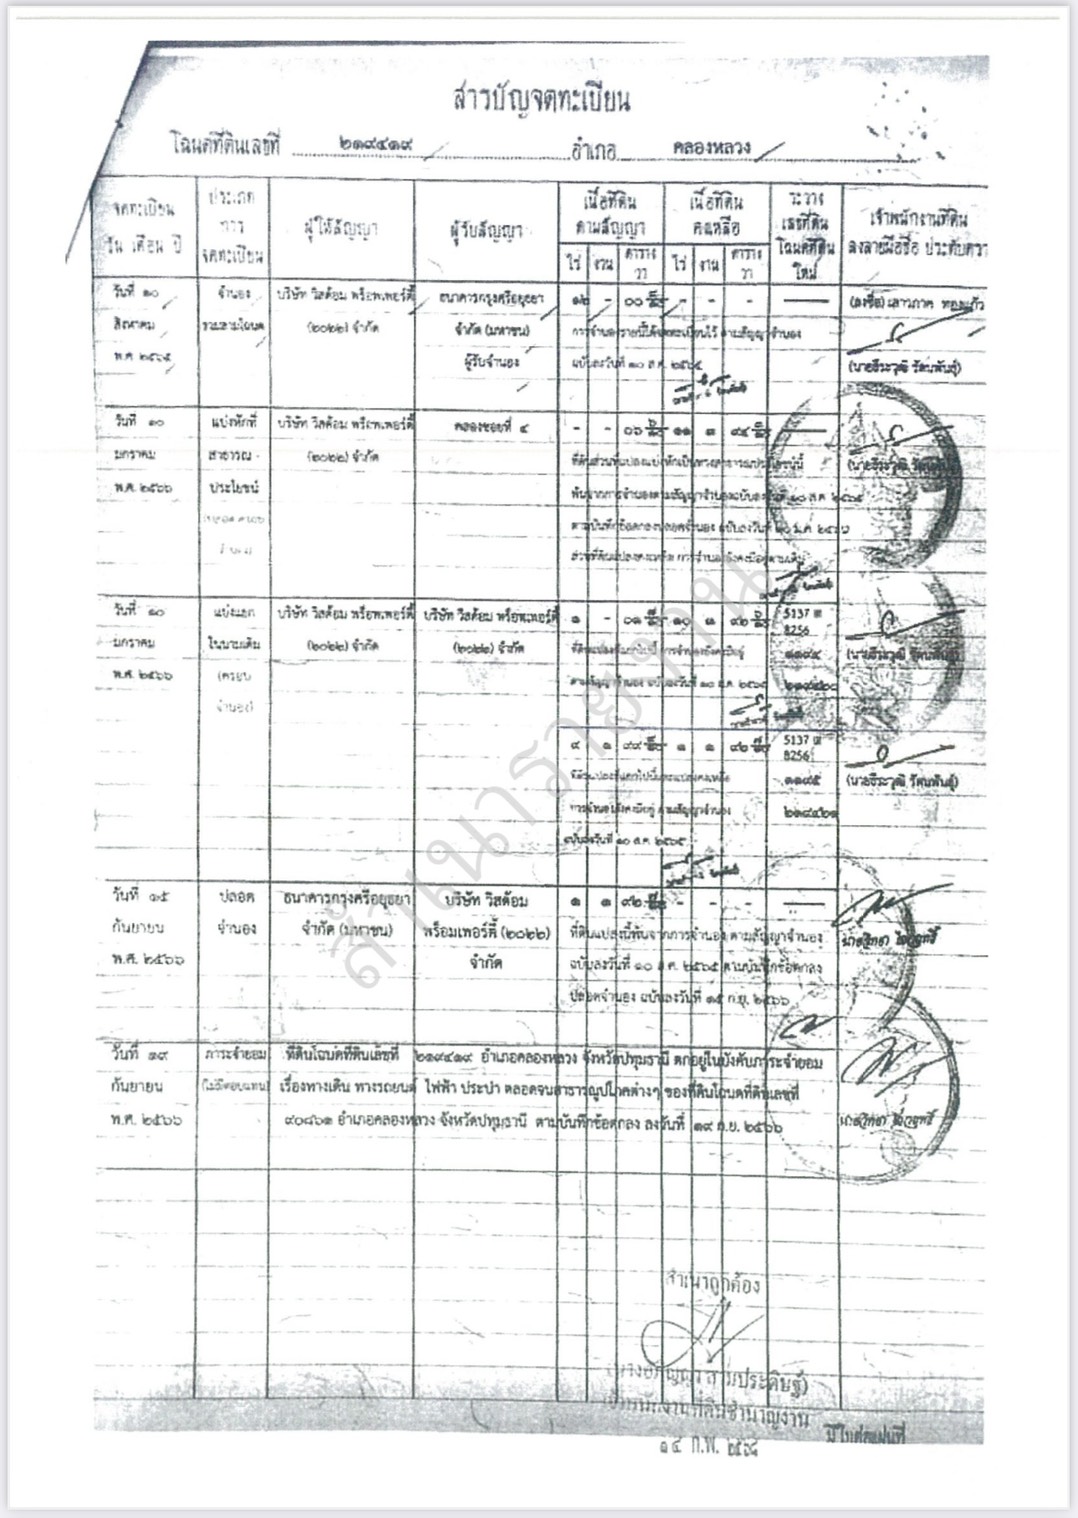 สารบัญจดทะเบียน
โฉนดที่ดินเลขที่ ๒๑๙๔๑๙ อำเภอ คลองหลวง
จดทะเบียน วัน เดือน ปี
ประเภทการจดทะเบียน
ผู้ให้สัญญา
ผู้รับสัญญา
เนื้อที่ดินตามสัญญา
ไร่ งาน ตารางวา
เนื้อที่ดินคงเหลือ
ไร่ งาน ตารางวา
ระวาง เลขที่ดิน โฉนดที่ดินใหม่
เจ้าพนักงานที่ดิน
ลงลายมือชื่อ ประทับตรา
วันที่ ๑๐ จำนอง บริษัท วิสด้อม พร็อพเพอร์ตี้ ธนาคารกรุงศรีอยุธยา ๑๒ - ๐๐ - - -
สิงหาคม รวมสามโฉนด (๒๐๒๒) จำกัด จำกัด (มหาชน) การจำนองรายนี้ได้จดทะเบียนไว้ ตามสัญญาจำนอง
พ.ศ. ๒๕๖๕ ผู้รับจำนอง ฉบับลงวันที่ ๑๐ ส.ค. ๒๕๖๕ (นายธีระวุฒิ รัตนพันธุ์)
วันที่ ๑๐ แบ่งหักที่ บริษัท วิสด้อม พร็อพเพอร์ตี้ คลองซอยที่ ๔ - - ๐๖ ๑๑ ๓ ๙๔
มกราคม สาธารณ- (๒๐๒๒) จำกัด ที่ดินส่วนที่แปลงแบ่งหักเป็นทางสาธารณประโยชน์นี้
พ.ศ. ๒๕๖๖ ประโยชน์ พ้นจากการจำนองตามสัญญาจำนองฉบับลงวันที่ ๑๐ ส.ค. ๒๕๖๕
ตามบันทึกข้อตกลงปลอดจำนอง ฉบับลงวันที่ ๑๐ ม.ค. ๒๕๖๖
ส่วนที่ดินแปลงคงเหลือ การจำนองยังคงมีอยู่ตามเดิม
วันที่ ๑๐ แบ่งแยก บริษัท วิสด้อม พร็อพเพอร์ตี้ บริษัท วิสด้อม พร็อพเพอร์ตี้ ๑ - ๐๑ ๑๐ ๓ ๙๒ 5137 III
มกราคม ในนามเดิม (๒๐๒๒) จำกัด (๒๐๒๒) จำกัด 8256
พ.ศ. ๒๕๖๖ (ครอบ ตามสัญญาจำนอง ฉบับลงวันที่ ๑๐ ส.ค. ๒๕๖๕
จำนอง)
๙ ๑ ๙๙ ๑ ๑ ๙๒ 5137 III
8256
ที่ดินแปลงที่แยกไปนี้และแปลงคงเหลือ (นายธีระวุฒิ รัตนพันธุ์)
การจำนองยังคงมีอยู่ ตามสัญญาจำนอง
ฉบับลงวันที่ ๑๐ ส.ค. ๒๕๖๕
วันที่ ๑๕ ปลอด ธนาคารกรุงศรีอยุธยา บริษัท วิสด้อม ๑ ๑ ๙๒ - - -
กันยายน จำนอง จำกัด (มหาชน) พร็อมเพอร์ตี้ (๒๐๒๒) ที่ดินแปลงนี้พ้นจากการจำนอง ตามสัญญาจำนอง
พ.ศ. ๒๕๖๖ จำกัด ฉบับลงวันที่ ๑๐ ส.ค. ๒๕๖๕ ตามบันทึกข้อตกลง
ปลอดจำนอง ฉบับลงวันที่ ๑๕ ก.ย. ๒๕๖๖
วันที่ ๑๙ ภาระจำยอม ที่ดินโฉนดที่ดินเลขที่ ๒๑๙๔๑๙ อำเภอคลองหลวง จังหวัดปทุมธานี ตกอยู่ในบังคับภาระจำยอม
กันยายน (ไม่มีค่าตอบแทน) เรื่องทางเดิน ทางรถยนต์ ไฟฟ้า ประปา ตลอดจนสาธารณูปโภคต่างๆ ของที่ดินโฉนดที่ดินเลขที่
พ.ศ. ๒๕๖๖ ๙๐๘๖๑ อำเภอคลองหลวง จังหวัดปทุมธานี ตามบันทึกข้อตกลง ลงวันที่ ๑๙ ก.ย. ๒๕๖๖
สำเนาถูกต้อง
เจ้าพนักงานที่ดินชำนาญงาน
๑๔ ก.พ. ๒๕๖๘
มีใบต่อแผ่นที่